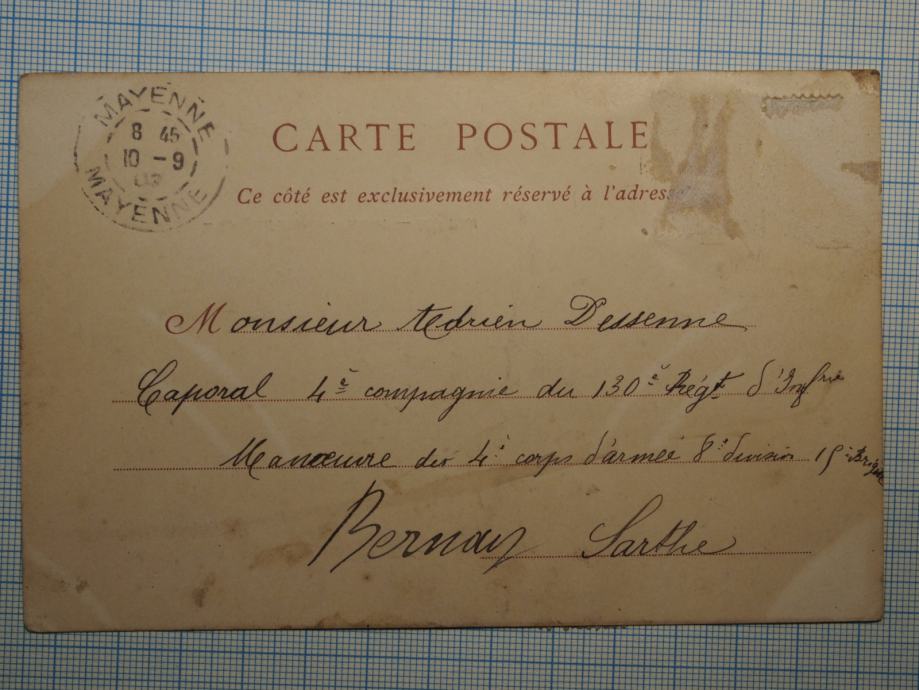 MAYENNE
8 45
10 - 9
03
MAYENNE
CARTE POSTALE
Ce côté est exclusivement réservé à l'adresse
Monsieur Adrien Dessenne
Caporal 4e compagnie du 130e Régt d'Infrie
Manœuvre du 4e corps d'armée 8e division 15e Brigade
Bernay Sarthe